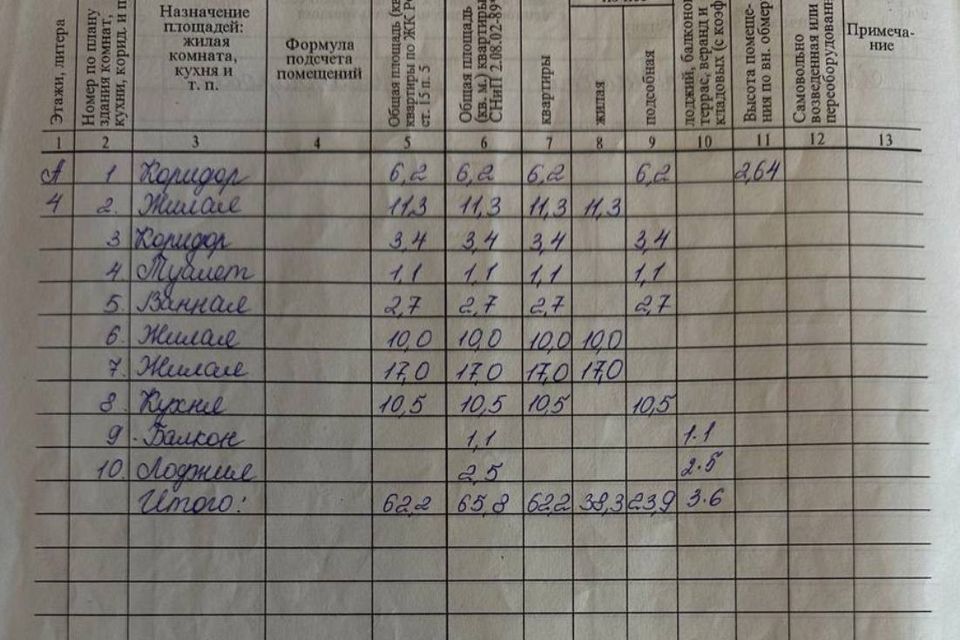 Этажи, литера
Номер по плану
здания комнат,
кухни, корид. и п
Назначение
площадей:
жилая
комната,
кухня и
т. п.
Формула
подсчета
помещений
Общая площадь (кв
квартиры по ЖК РФ
ст. 15 п. 5
Общая площадь
(кв. м.) квартиры
СНиП 2.08.02-89*
квартиры
жилая
подсобная
лоджий, балконов
террас, веранд и
кладовых (с коэф
Высота помеще-
ния по вн. обмер
Самовольно
возведенная или
переоборудованн
Примеча-
ние
1 2 3 4 5 6 7 8 9 10 11 12 13
А 1 Коридор 6,2 6,2 6,2 6,2 2,64
4 2. Жилая 11,3 11,3 11,3 11,3
3 Коридор 3,4 3,4 3,4 3,4
4. Туалет 1,1 1,1 1,1 1,1
5. Ванная 2,7 2,7 2,7 2,7
6. Жилая 10,0 10,0 10,0 10,0
7. Жилая 17,0 17,0 17,0 17,0
8. Кухня 10,5 10,5 10,5 10,5
9. Балкон 1,1 1.1
10. Лоджия 2,5 2.5
Итого: 62,2 65,8 62,2 38,3 23,9 3.6